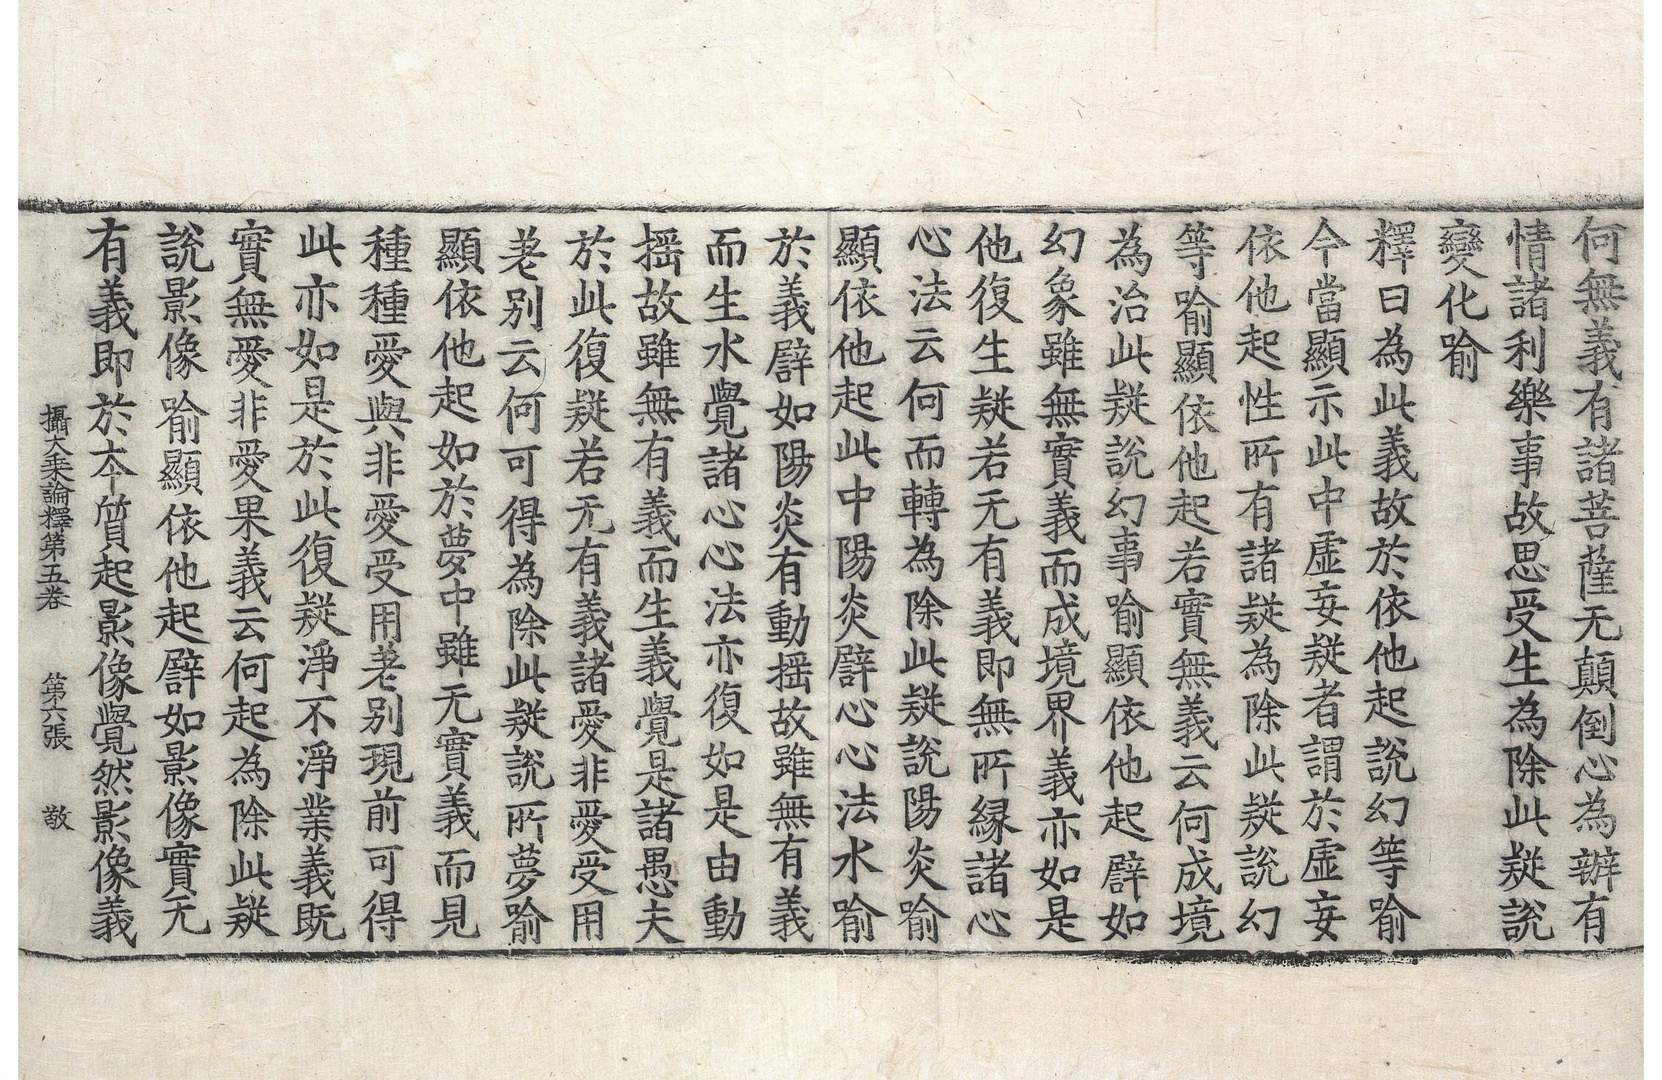 何無義有諸菩薩无顛倒心為辦有
情諸利樂事故思受生為除此疑說
變化喻
釋曰為此義故於依他起說幻等喻
今當顯示此中虛妄疑者謂於虛妄
依他起性所有諸疑為除此疑說幻
等喻顯依他起若實無義云何成境
為治此疑說幻事喻顯依他起譬如
幻象雖無實義而成境界義亦如是
他復生疑若无有義即無所緣諸心
心法云何而轉為除此疑說陽炎喻
顯依他起此中陽炎譬心心法水喻
於義譬如陽炎有動搖故雖無有義
而生水覺諸心心法亦復如是由動
搖故雖無有義而生義覺是諸愚夫
於此復疑若无有義諸愛非愛受用
差別云何可得為除此疑說所夢喻
顯依他起如於夢中雖无實義而見
種種愛與非愛受用差別現前可得
此亦如是於此復疑淨不淨業義既
實無愛非愛果義云何起為除此疑
說影像喻顯依他起譬如影像實无
有義即於本質起影像覺然影像義
攝大乗論釋第五卷 第六張 敬